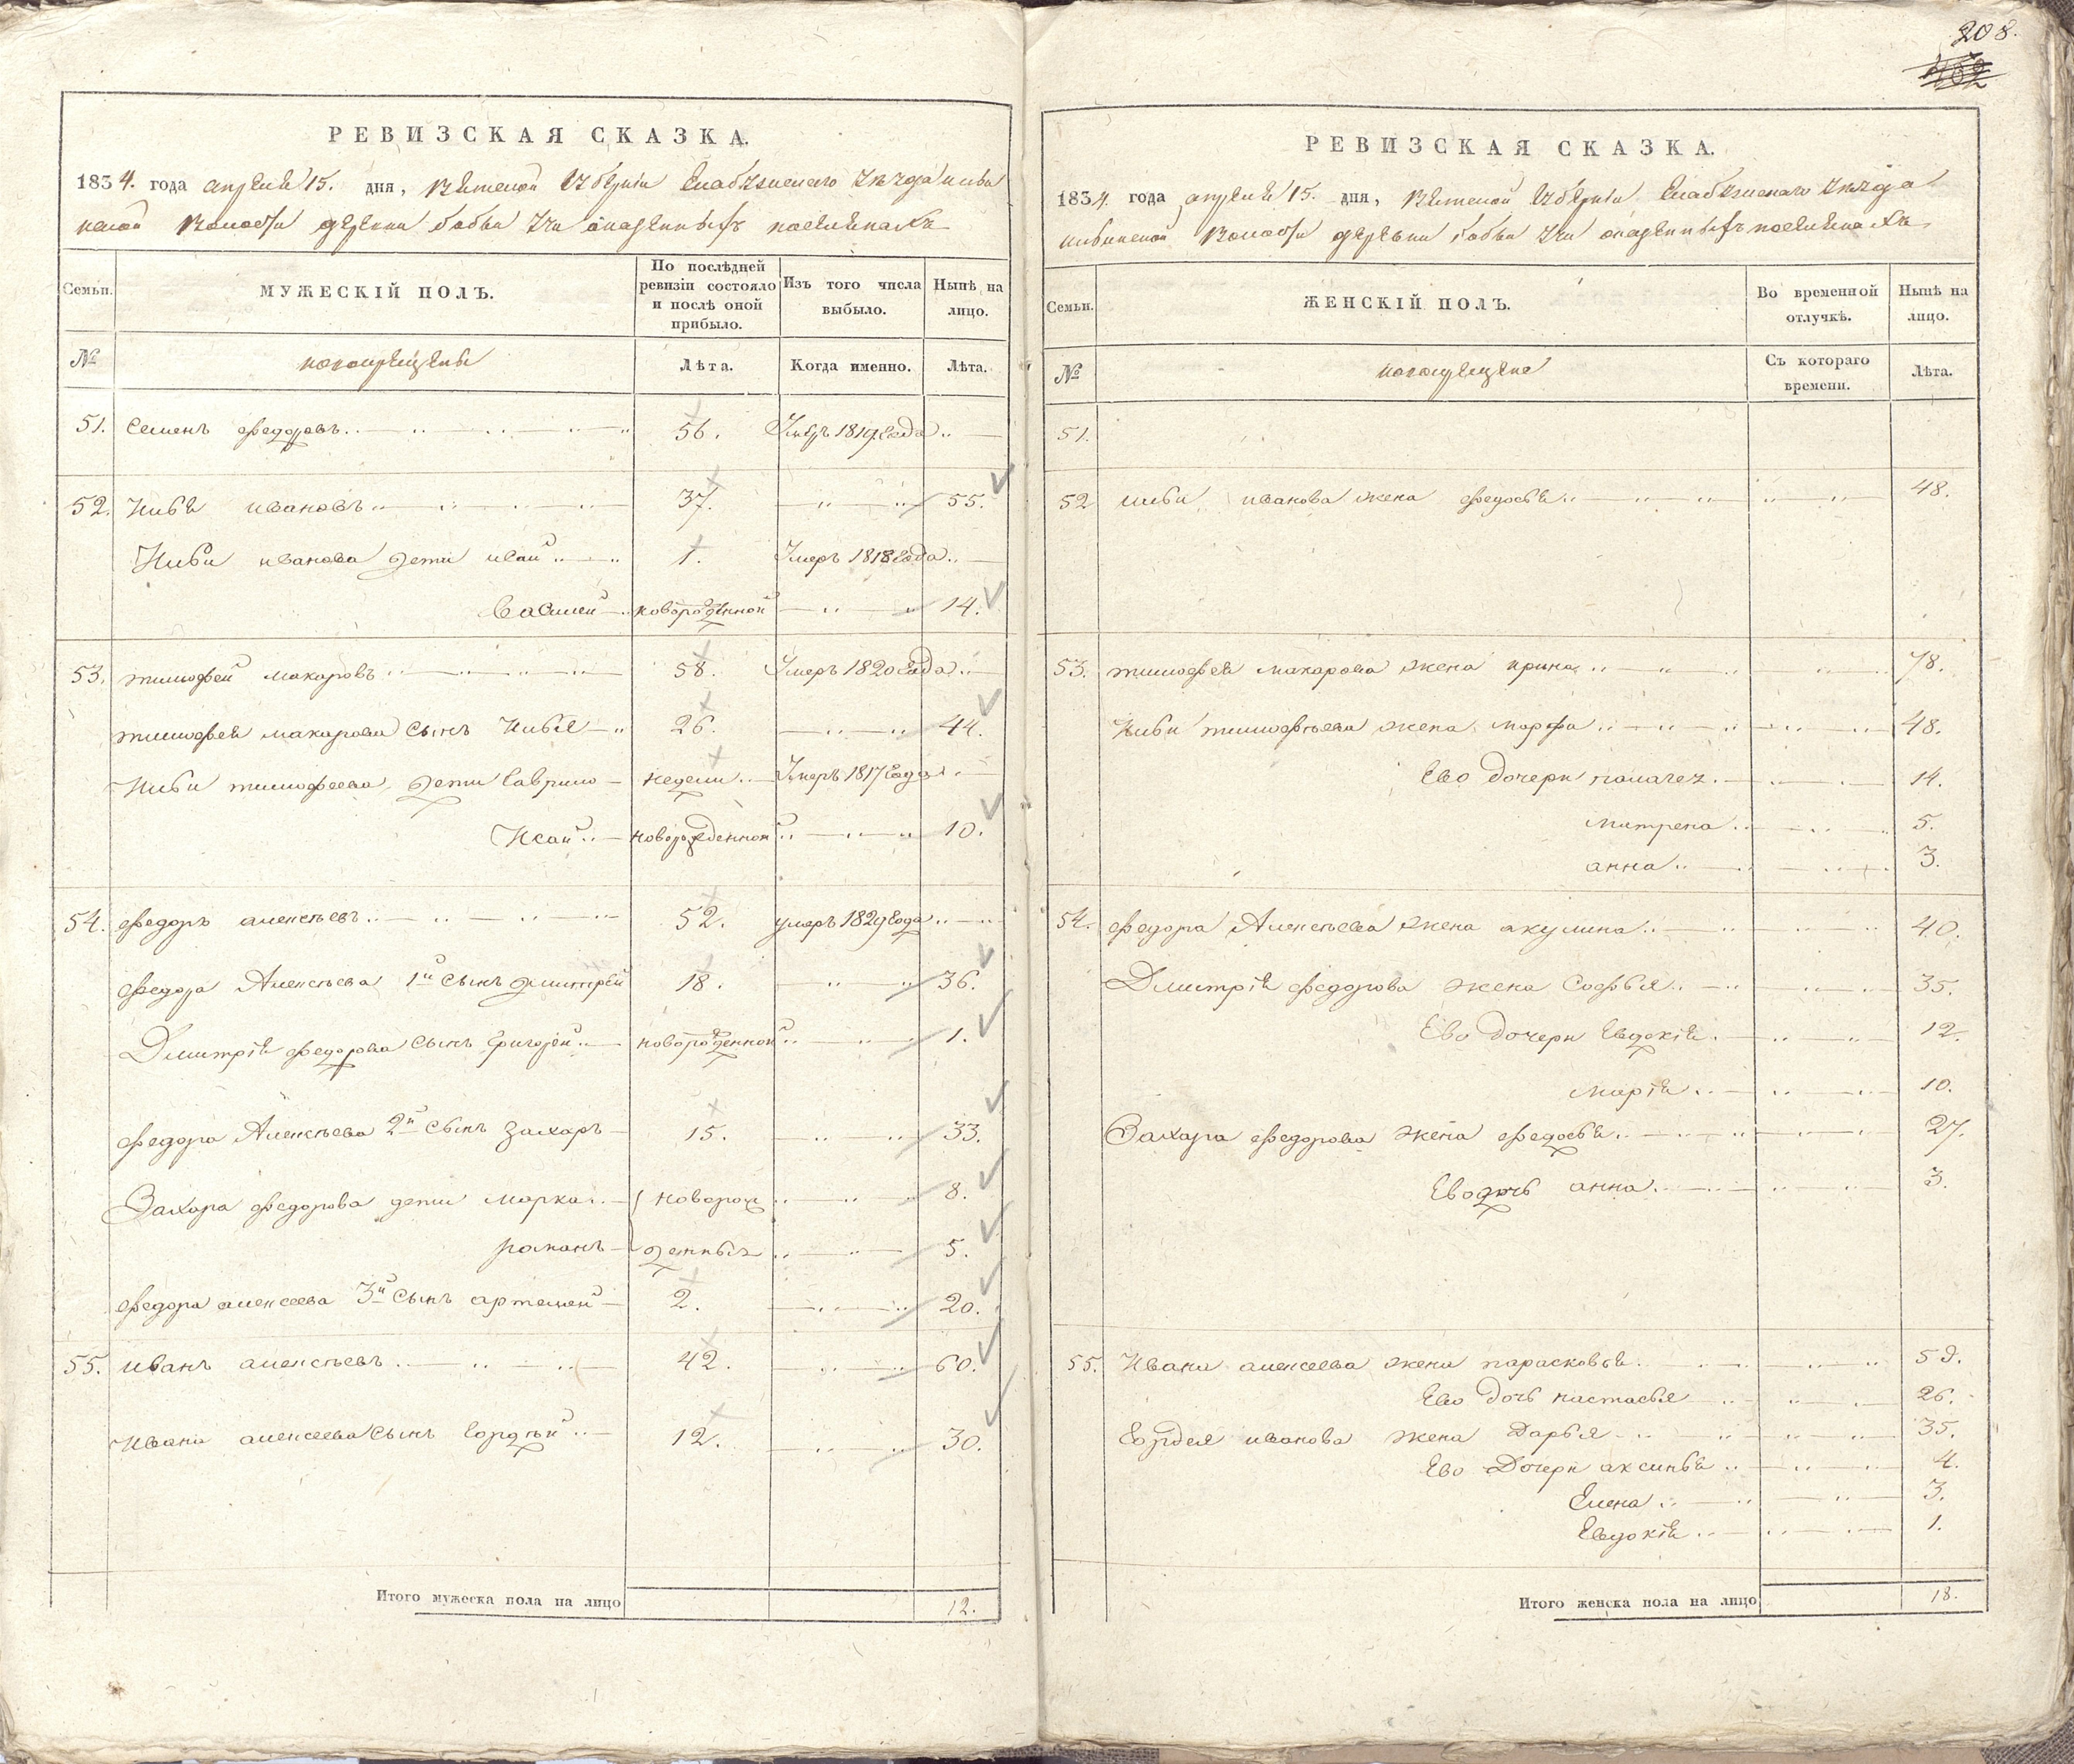 208.
РЕВИЗСКАЯ СКАЗКА.
1834. года апреля 15. дня, Вятской Губернии Елабужскаго Уезда
ской Волости деревни бобьи Учи
Семьи.
МУЖЕСКІЙ ПОЛЪ.
По послѣдней ревизіи состояло и послѣ оной прибыло.
Изъ того числа выбыло.
Нынѣ на лицо.
№
новокрещены
Лѣта.
Когда именно.
Лѣта.
51. Семенъ федоровъ 56. Умеръ 1819 Года
52. Ивановъ 37. 55.
иванова дети иван 1. Умеръ 1818 Года
Василей новорожденной 14.
53. тимофей макаровъ 58. Умеръ 1820 Года
тимофея макарова сынъ 26. 44.
тимофеева дети Гаврило недели Умеръ 1817 Года
Исай новорожденной 10.
54. федоръ алексѣевъ 52. умеръ 1829 Года
федора Алексѣева 1й сынъ дмитрей 18. 36.
Дмитрія федорова сынъ григорей новорожденной 1.
федора Алексѣева 2й сынъ захаръ 15. 33.
Захара федорова дети марко 8.
романъ 5.
новорожденныхъ
федора алексеева 3й сынъ артемей 2. 20.
55. иванъ алексѣевъ 42. 60.
Ивана алексеева сынъ Гордѣй 12. 30.
Итого мужеска пола на лицо 12.
РЕВИЗСКАЯ СКАЗКА.
1834. года апреля 15. дня, Вятской Губернии Елабужскаго Уезда
Волости деревни бобьи Учи
Семьи.
ЖЕНСКІЙ ПОЛЪ.
Во временной отлучкѣ.
Нынѣ на лицо.
№
новокрещена
Съ котораго времени.
Лѣта.
51.
52 иванова жена федосья 48.
53. тимофея макарова жена ирина 78.
тимофѣева жена марфа 48.
Ево дочери 14.
матрена 5.
анна 3.
54. федора Алексѣева жена акулина 40.
Дмитрія федорова жена Софья 35.
Ево дочери Евдокія 12.
марія 10.
Захара федорова жена федосья 27.
Ево дочь анна 3.
55. Ивана алексеева жена парасковья 59.
Ево дочь настасья 26.
Гордея иванова жена Дарья 35.
Ево Дочери аксинья 4.
Елена 3.
Евдокія 1.
Итого женска пола на лицо 18.